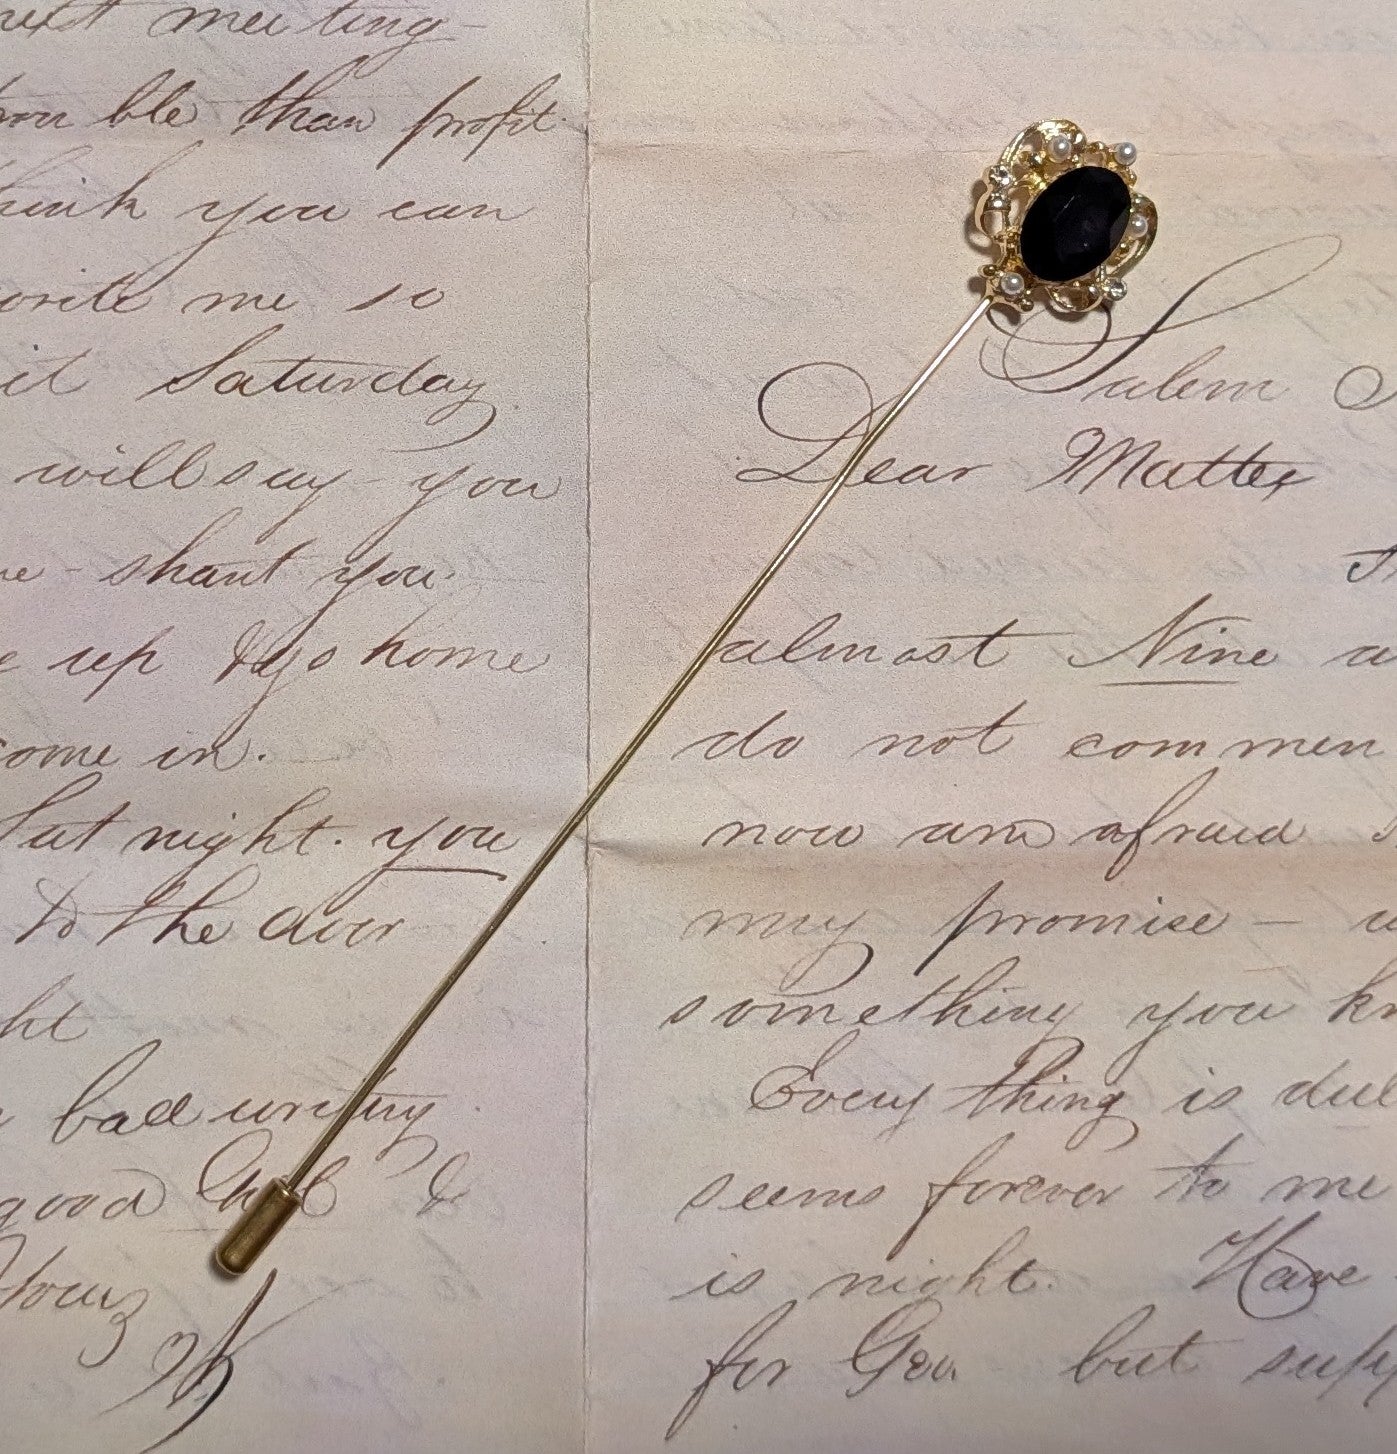 next meeting
than profit
think you can
write me so
it Saturday
will say you
- shant you
up & go home
come in.
Sat night. you
to the door
bad writing
good &
Salem
Dear Mattie
almost Nine
do not commen
now am afraid
my promise –
something you kn
Every thing is dul
seems forever to me
is night. Have
for Geo. but supp